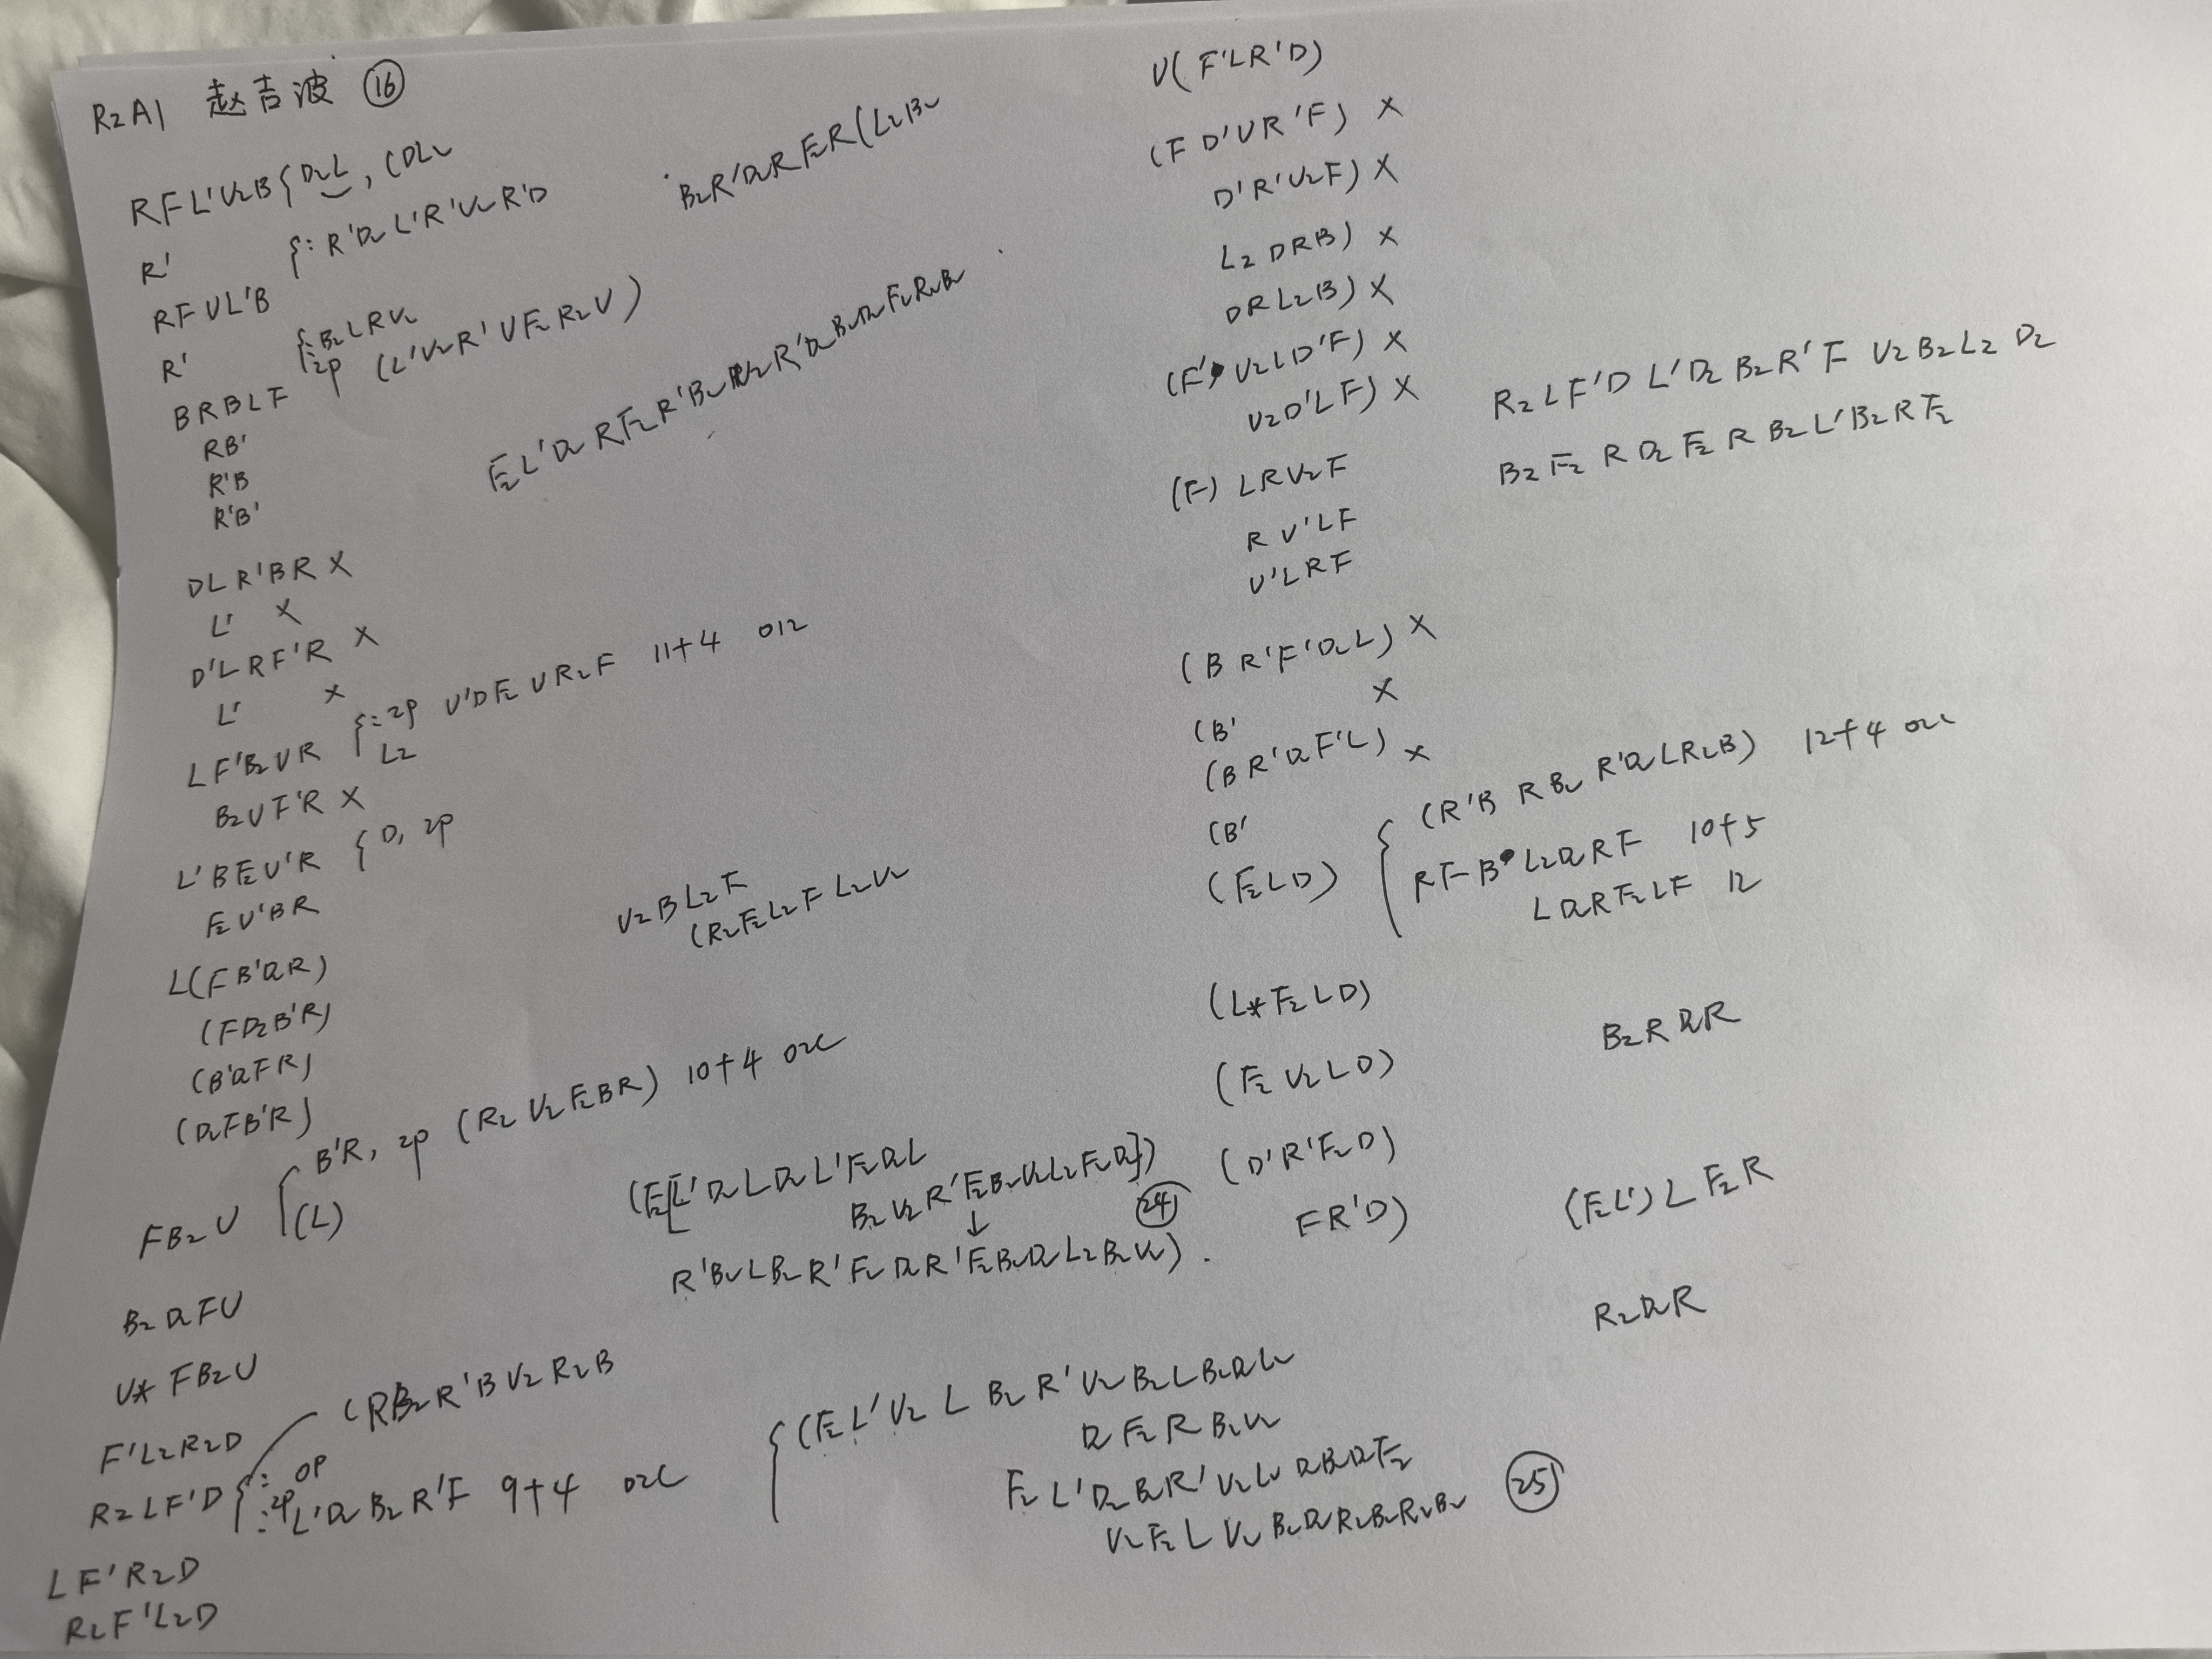 R2A1 赵吉波 ⑯
RFL'U2B{D2L, (DL2
R' {: R'D2L'R'U2R'D
RFUL'B
R' {:B2LRU2
:2p (L'U2R'UF2R2U)
BRBLF
RB'
R'B
R'B'
DLR'BR X
L' X
D'LRF'R X
L' X
LF'B2UR {:2p U'DF2UR2F 11+4 012
L2
B2UF'R X
L'BF2U'R {D, 2p
F2U'BR
L(FB'D2R)
(FD2B'R)
(B'D2FR)
(D2FB'R)
FB2U {B'R, 2p (R2U2F2BR) 10+4 02c
(L)
B2D2FU
U* FB2U
F'L2R2D
(RB2R'BU2R2B
R2LF'D {: 0p
:2p L'D2B2R'F 9+4 02c
LF'R2D
R2F'L2D
B2R'D2RF2R(L2B2
F2L'D2RF2R'B2U2R'D2B2D2F2R2B2
U2BL2F
(R2F2L2FL2U2
(F2[L'D2LD2L'F2D2L
B2U2R'F2B2U2L2F2D2])
↓ ㉔
R'B2LB2R'F2D2R'F2B2D2L2B2U2).
{(F2L'U2LB2R'U2B2LB2D2L2
D2F2RB2U2
F2L'D2B2R'U2L2D2B2D2F2
U2F2LU2B2D2R2B2R2B2 ㉕
U(F'LR'D)
(FD'UR'F) X
D'R'U2F) X
L2DRB) X
DRL2B) X
(F'U2LD'F) X
U2D'LF) X
R2LF'DL'D2B2R'FU2B2L2D2
(F) LRU2F
B2F2RD2F2RB2L'B2RF2
RU'LF
U'LRF
(BR'F'D2L) X
(B' X
(BR'D2F'L) X
(B'
(F2LD) {(R'BRB2R'D2LR2B) 12+4 02c
RFB'L2D2RF 10+5
LD2RF2LF 12
(L*F2LD)
(F2U2LD) B2RD2R
(D'R'F2D)
FR'D) (F2L')LF2R
R2D2R